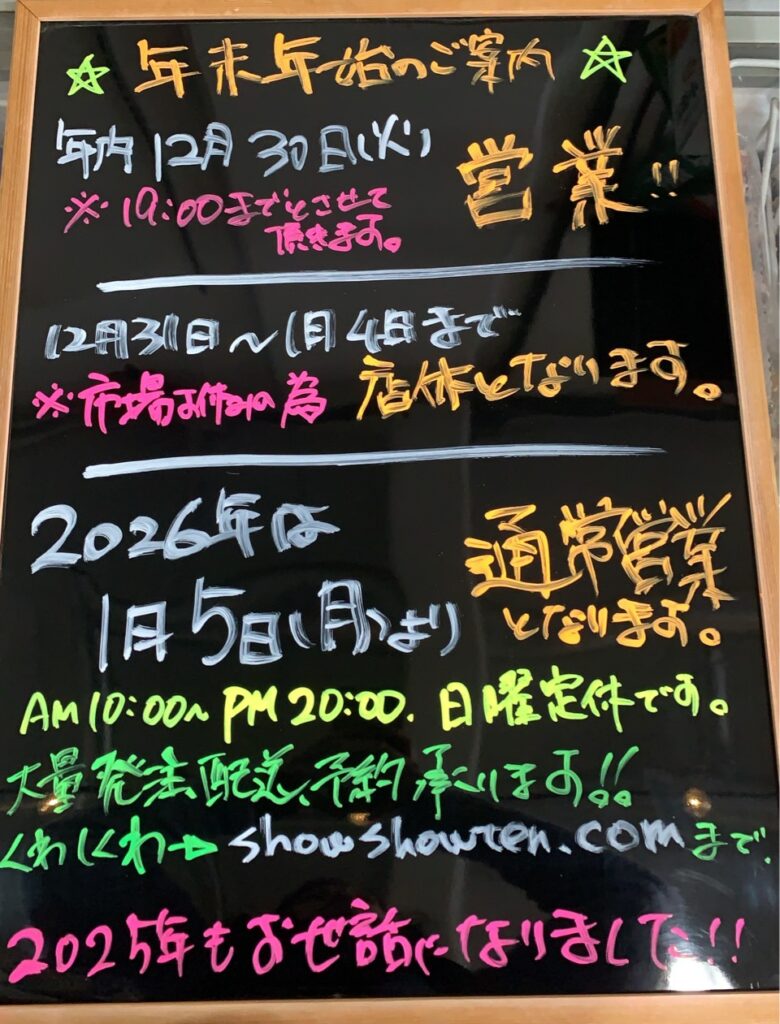 ☆ 年末年始のご案内 ☆
年内12月30日(火) 営業!!
※19:00までとさせて
頂きます。
12月31日〜1月4日まで
※市場お休みの為 店休となります。
2026年は 通常営業
1月5日(月)より となります。
AM10:00〜PM20:00. 日曜定休です。
大量発注、配送、予約承ります!!
くわしくわ→showshowten.comまで.
2025年もおせ話になりました!!